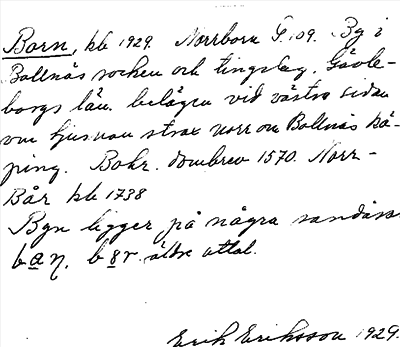 Born, kb 1929. Norrborn G. 109. By i
Bollnäs socken och tingslag, Gävle-
borgs län. belägen vid västra sidan
om Ljusnan strax norr om Bollnäs kö-
ping. Bohr. dombrev 1570. Norr-
Bår kb 1738
Byn ligger på några sandåsar
baη, bor. äldre uttal.
Erik Eriksson 1929.